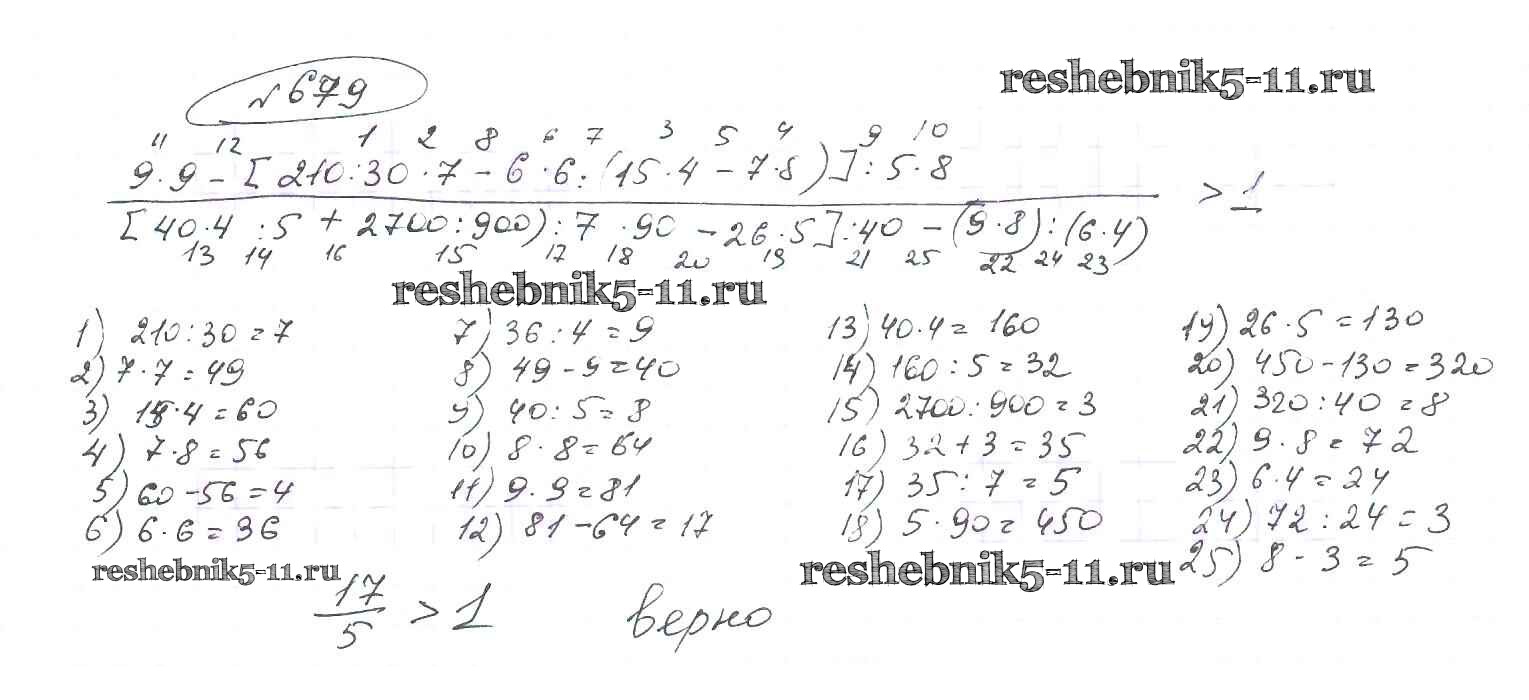 №679
reshebnik5-11.ru
11 12 1 2 8 6 7 3 5 4 9 10
9·9 - [210:30·7 - 6·6:(15·4 - 7·8)]:5·8
> 1
[40·4 :5 + 2700:900):7 ·90 - 26·5]:40 - (9·8):(6·4)
13 14 16 15 17 18 20 19 21 25 22 24 23
reshebnik5-11.ru
1) 210:30=7
2) 7·7=49
3) 15·4=60
4) 7·8=56
5) 60-56=4
6) 6·6=36
7) 36:4=9
8) 49-9=40
9) 40:5=8
10) 8·8=64
11) 9·9=81
12) 81-64=17
13) 40·4=160
14) 160:5=32
15) 2700:900=3
16) 32+3=35
17) 35:7=5
18) 5·90=450
19) 26·5=130
20) 450-130=320
21) 320:40=8
22) 9·8=72
23) 6·4=24
24) 72:24=3
25) 8-3=5
reshebnik5-11.ru
reshebnik5-11.ru
17
5
> 1 верно